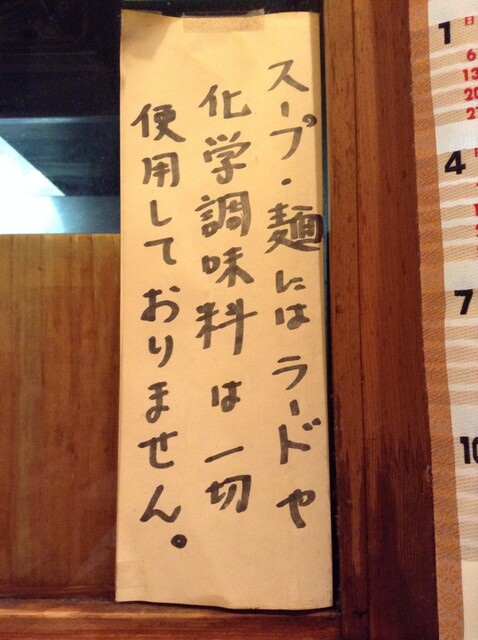 スープ・麺にはラードや
化学調味料は一切
使用しておりません。
1
日
6
13
20
27
4
7
10